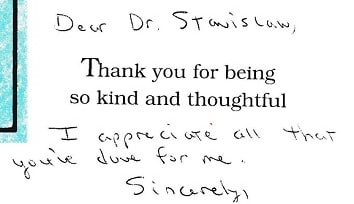 Dear Dr. Stanislaw,
Thank you for being
so kind and thoughtful
I appreciate all that
you've done for me.
Sincerely,